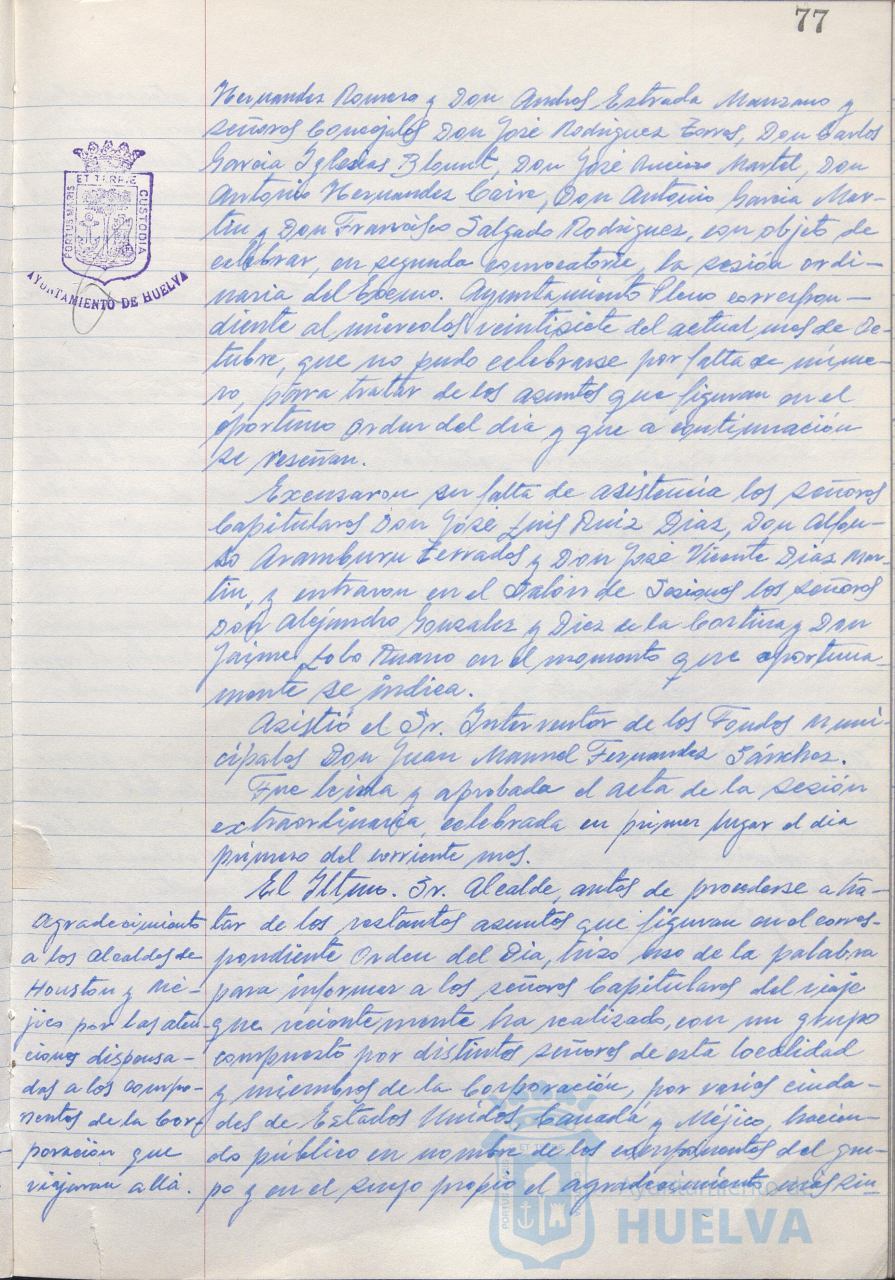 77
Hernandez Romero y Don Andres Estrada Manzano y
señores Concejales Don José Rodriguez Torres, Don Carlos
Garcia Iglesias Blount, Don José Martel, Don
Antonio Hernandez Caire, Don Antonio Garcia Mar-
tin y Don Francisco Salgado Rodriguez, con objeto de
celebrar, en segunda convocatoria, la sesión ordi-
naria del Excmo. Ayuntamiento Pleno correspon-
diente al miercoles veintisiete del actual mes de Oc-
tubre, que no pudo celebrarse por falta de núme-
ro, para tratar de los asuntos que figuran en el
oportuno Orden del dia y que a continuación
se reseñan.
Excusaron su falta de asistencia los señores
Capitulares Don José Luis Ruiz Diaz, Don Alfon-
so Aramburu Terrados y Don José Vicente Diaz Mar-
tin, y entraron en el Salón de Sesiones los señores
Don Alejandro Gonzalez y Diez de la Cortina y Don
Jaime Lobo Ruano en el momento que oportuna-
mente se indica.
Asistió el Sr. Interventor de los Fondos Muni-
cipales Don Juan Manuel Fernandez Sánchez.
Fue leida y aprobada el acta de la sesión
extraordinaria, celebrada en primer lugar el dia
primero del corriente mes.
El Iltmo. Sr. Alcalde, antes de procederse a tra-
tar de los restantes asuntos que figuran en el corres-
pondiente Orden del Dia, hizo uso de la palabra
para informar a los señores Capitulares del viaje
que recientemente ha realizado, con un grupo
compuesto por distintos señores de esta localidad
y miembros de la Corporación, por varias ciuda-
des de Estados Unidos, Canadá y Méjico, hacien-
do público en nombre de los componentes del gru-
po y en el suyo propio el agradecimiento más sin-
Agradecimiento
a los Alcaldes de
Houston y Mé-
jico por las aten-
ciones dispensa-
das a los compo-
nentes de la Cor-
poración que
viajaron allá.
PORTUS MARIS
ET TERRE
CUSTODIA
AYUNTAMIENTO DE HUELVA
Ayuntamiento de
HUELVA